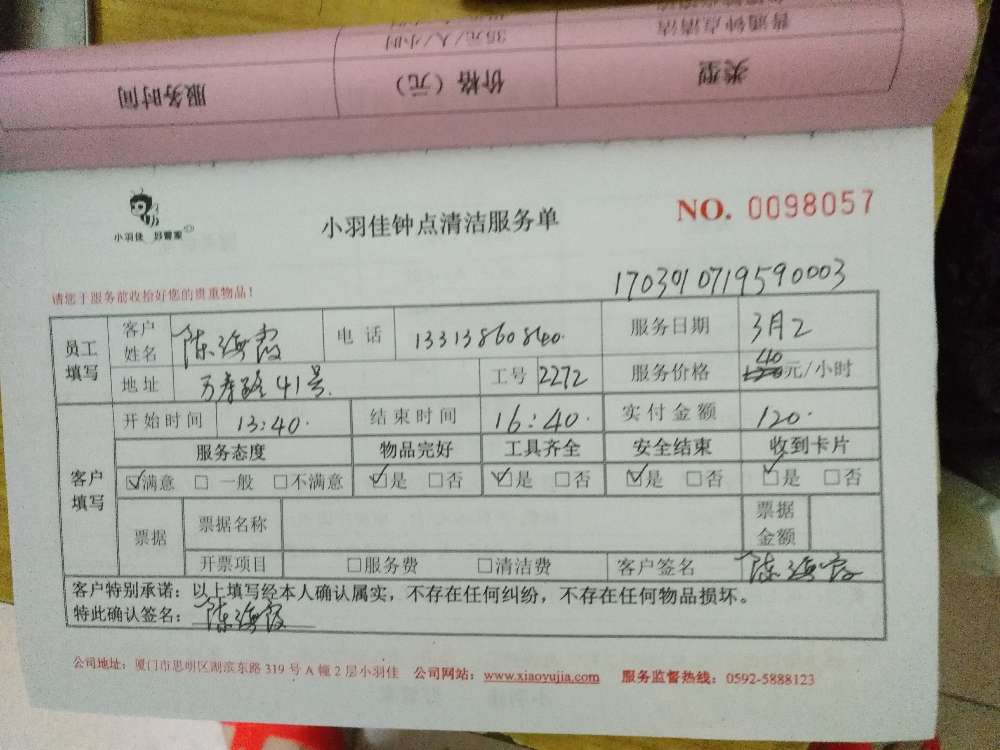 普通钟点清洁 35元/人/小时
类型 价格（元） 服务时间
小羽佳 好管家
小羽佳钟点清洁服务单
NO. 0098057
请您于服务前收拾好您的贵重物品！
1703010719590003
员工填写 客户姓名 陈海霞 电话 13313860840. 服务日期 3月2
地址 万寿路41号. 工号 2272 服务价格 40 元/小时
客户填写 开始时间 13:40. 结束时间 16:40. 实付金额 120.
服务态度 物品完好 工具齐全 安全结束 收到卡片
☑满意 □一般 □不满意 ☑是 □否 ☑是 □否 ☑是 □否 ☑是 □否
票据 票据名称 票据金额
开票项目 □服务费 □清洁费 客户签名 陈海霞
客户特别承诺：以上填写经本人确认属实，不存在任何纠纷，不存在任何物品损坏。
特此确认签名：陈海霞
公司地址：厦门市思明区湖滨东路319号A幢2层小羽佳 公司网站：www.xiaoyujia.com 服务监督热线：0592-5888123